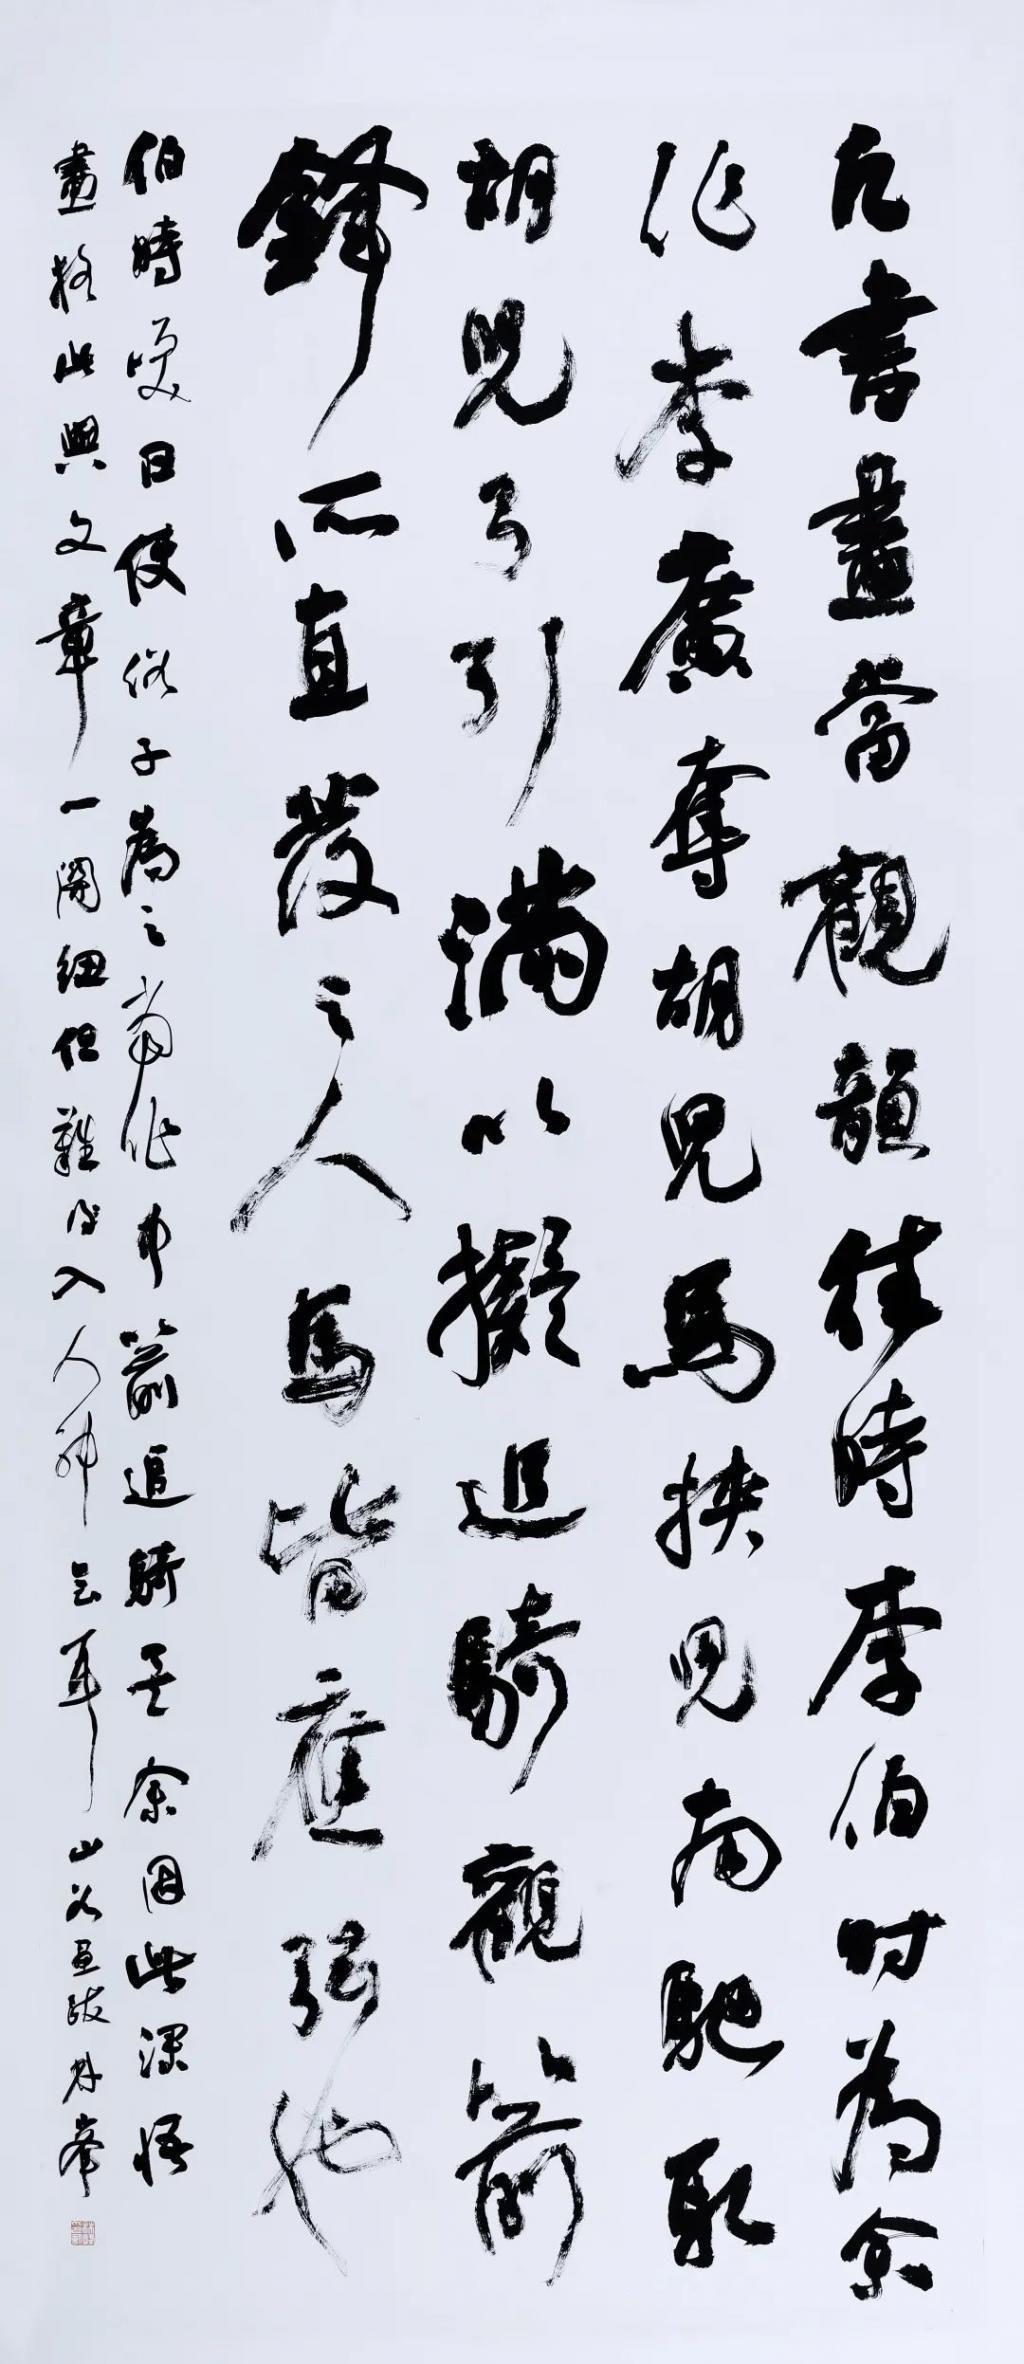 凡書畫當觀韻往時李伯时為余
作李廣奪胡兒馬挾兒南馳取
胡兒弓引滿以擬追騎觀箭
鋒所直發之人馬皆應弦也
伯時笑曰使俗子為之當作中箭追騎矣余因此深悟
畫格此與文章一關紐但難得入人神會耳 山谷画跋